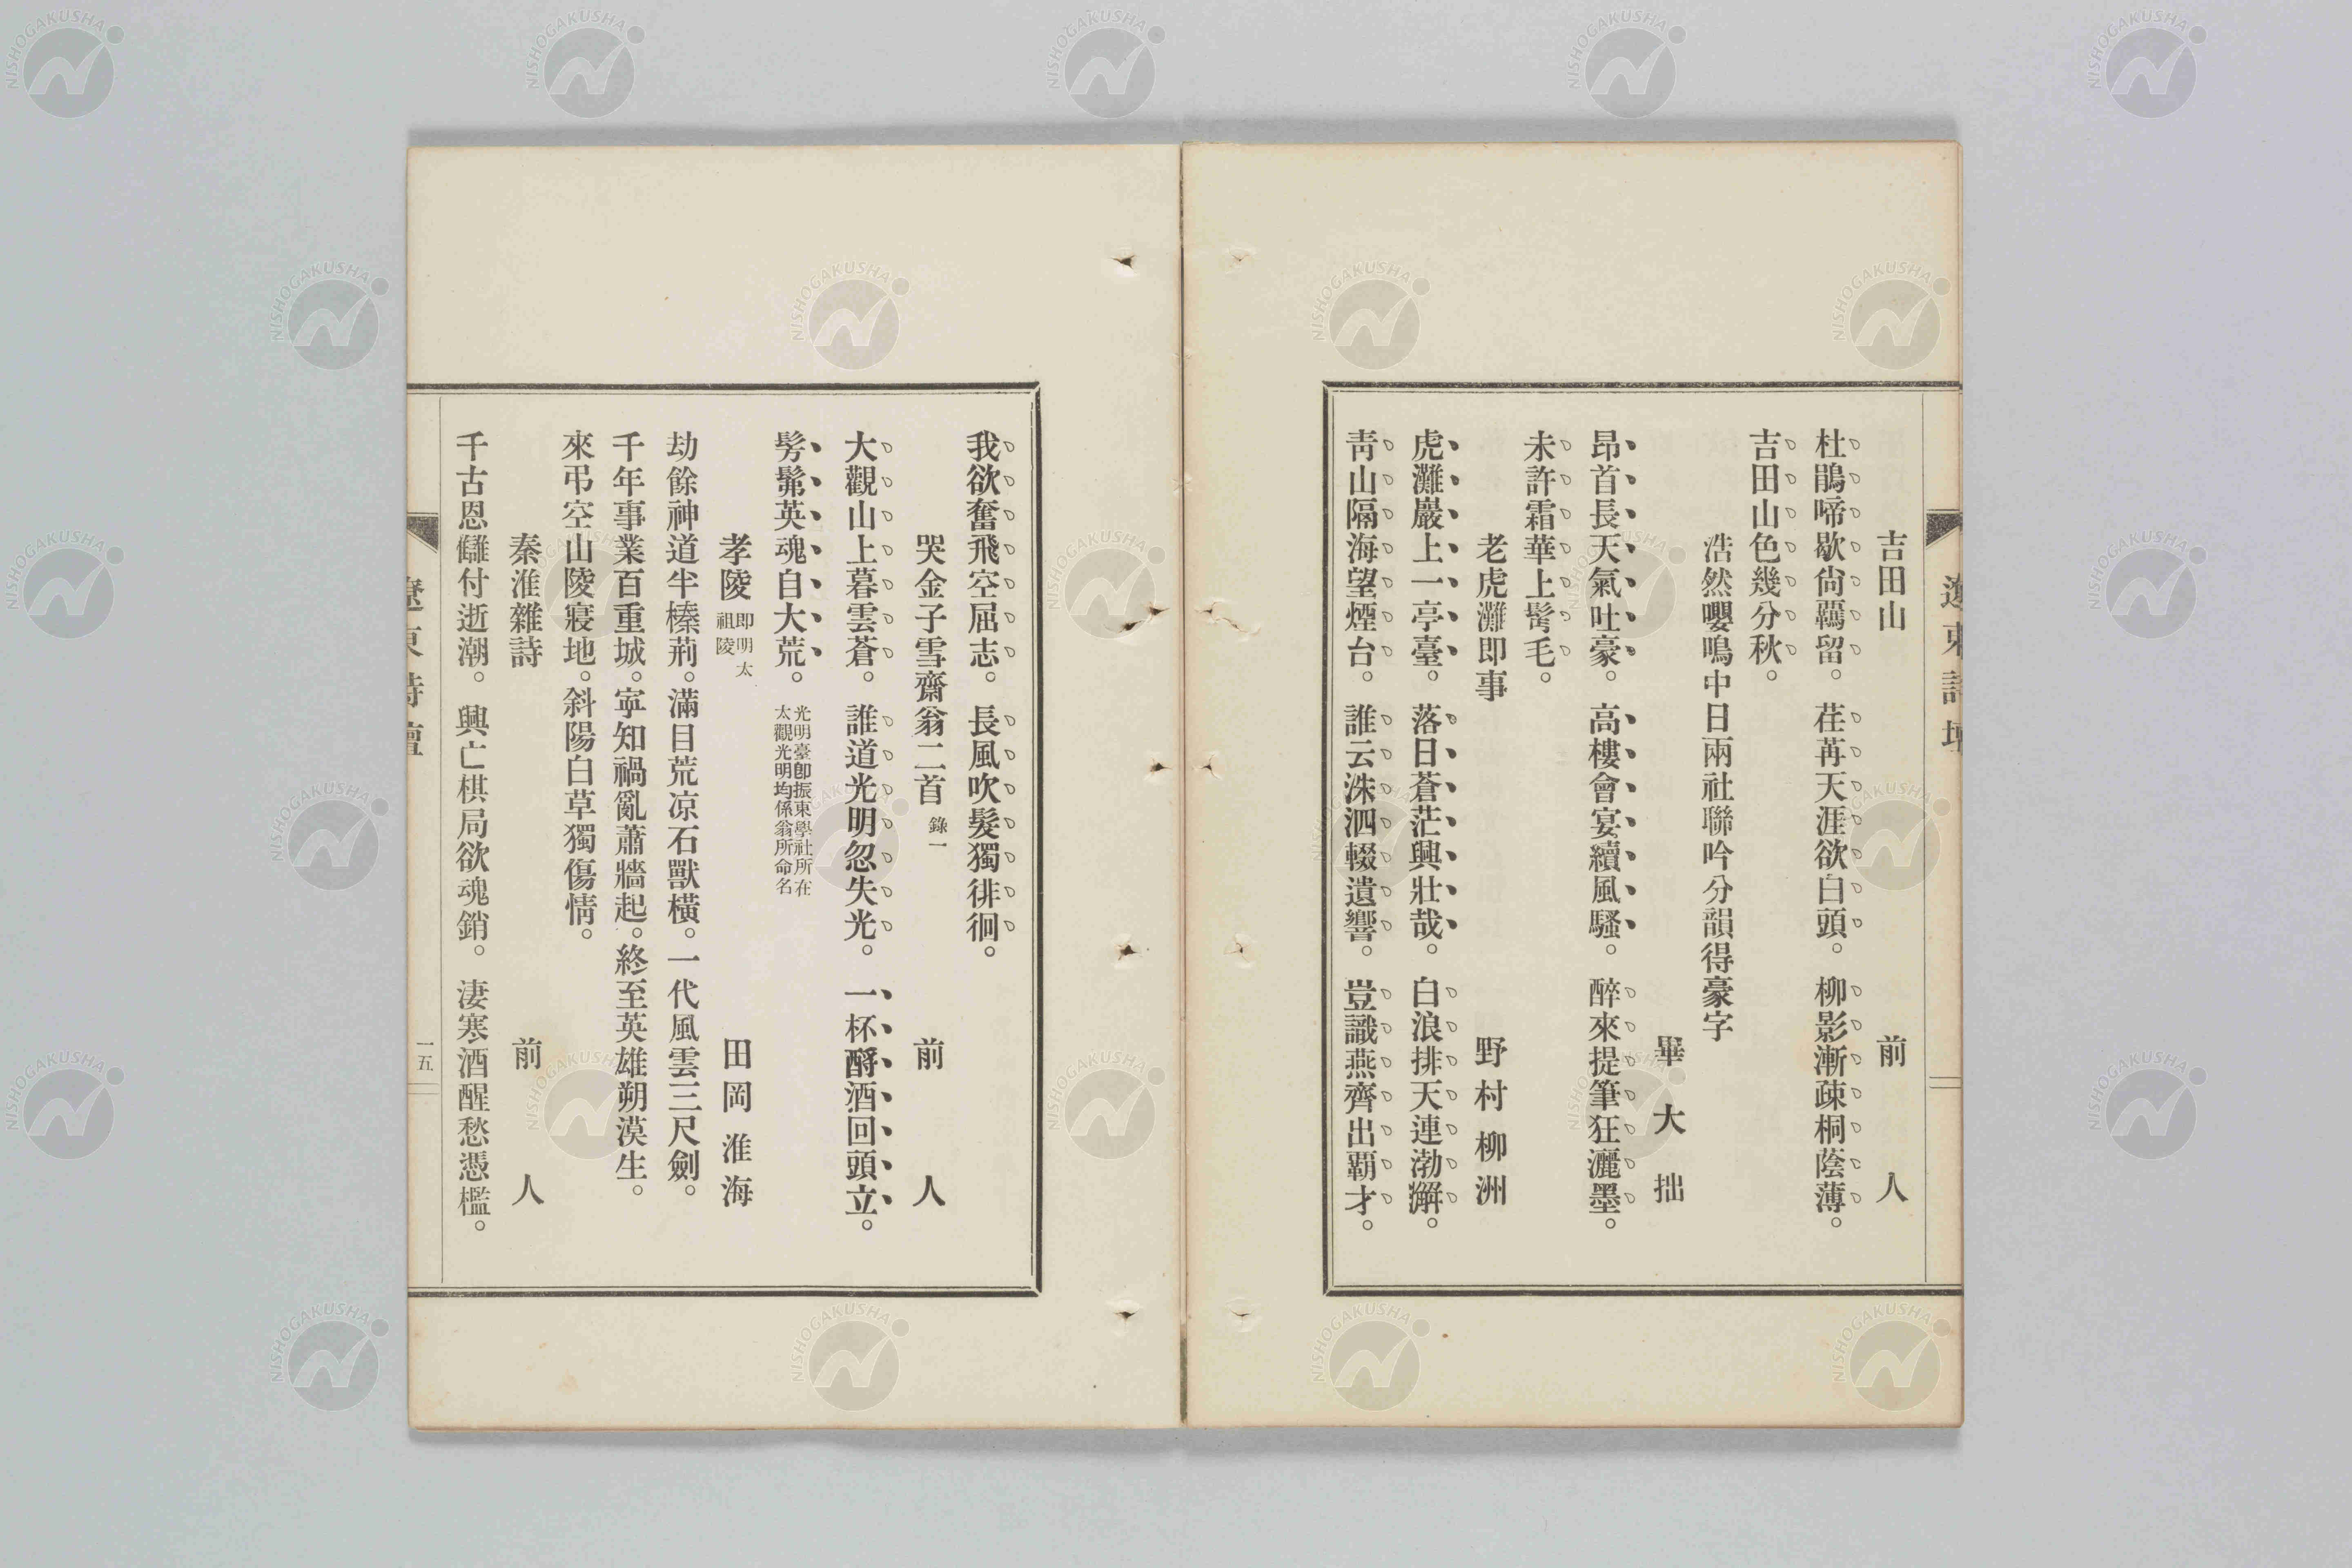 遼東詩壇
吉田山　前人
杜鵑啼歇尙羈留。荏苒天涯欲白頭。柳影漸疎桐蔭薄。
吉田山色幾分秋。
浩然嚶鳴中日兩社聯吟分韻得豪字
畢大拙
昂首長天氣吐豪。高樓會宴續風騷。醉來提筆狂灑墨。
未許霜華上鬢毛。
老虎灘即事　野村柳洲
虎灘巖上一亭臺。落日蒼茫興壯哉。白浪排天連渤澥。
靑山隔海望煙台。誰云洙泗輟遺響。豈識燕齊出覇才。
我欲奮飛空屈志。長風吹髮獨徘徊。
哭金子雪齋翁二首 錄一　前人
大觀山上暮雲蒼。誰道光明忽失光。一杯酹酒回頭立。
髣髴英魂自大荒。光明臺卽振東學社所在
太觀光明均係翁所命名
孝陵 即明太
祖陵　田岡淮海
劫餘神道半榛荊。滿目荒凉石獸橫。一代風雲三尺劍。
千年事業百重城。寧知禍亂蕭牆起。終至英雄朔漠生。
來弔空山陵寢地。斜陽白草獨傷情。
秦淮雜詩　前人
千古恩讎付逝潮。興亡棋局欲魂銷。淒寒酒醒愁憑檻。
遼東詩壇
一五
NISHOGAKUSHA